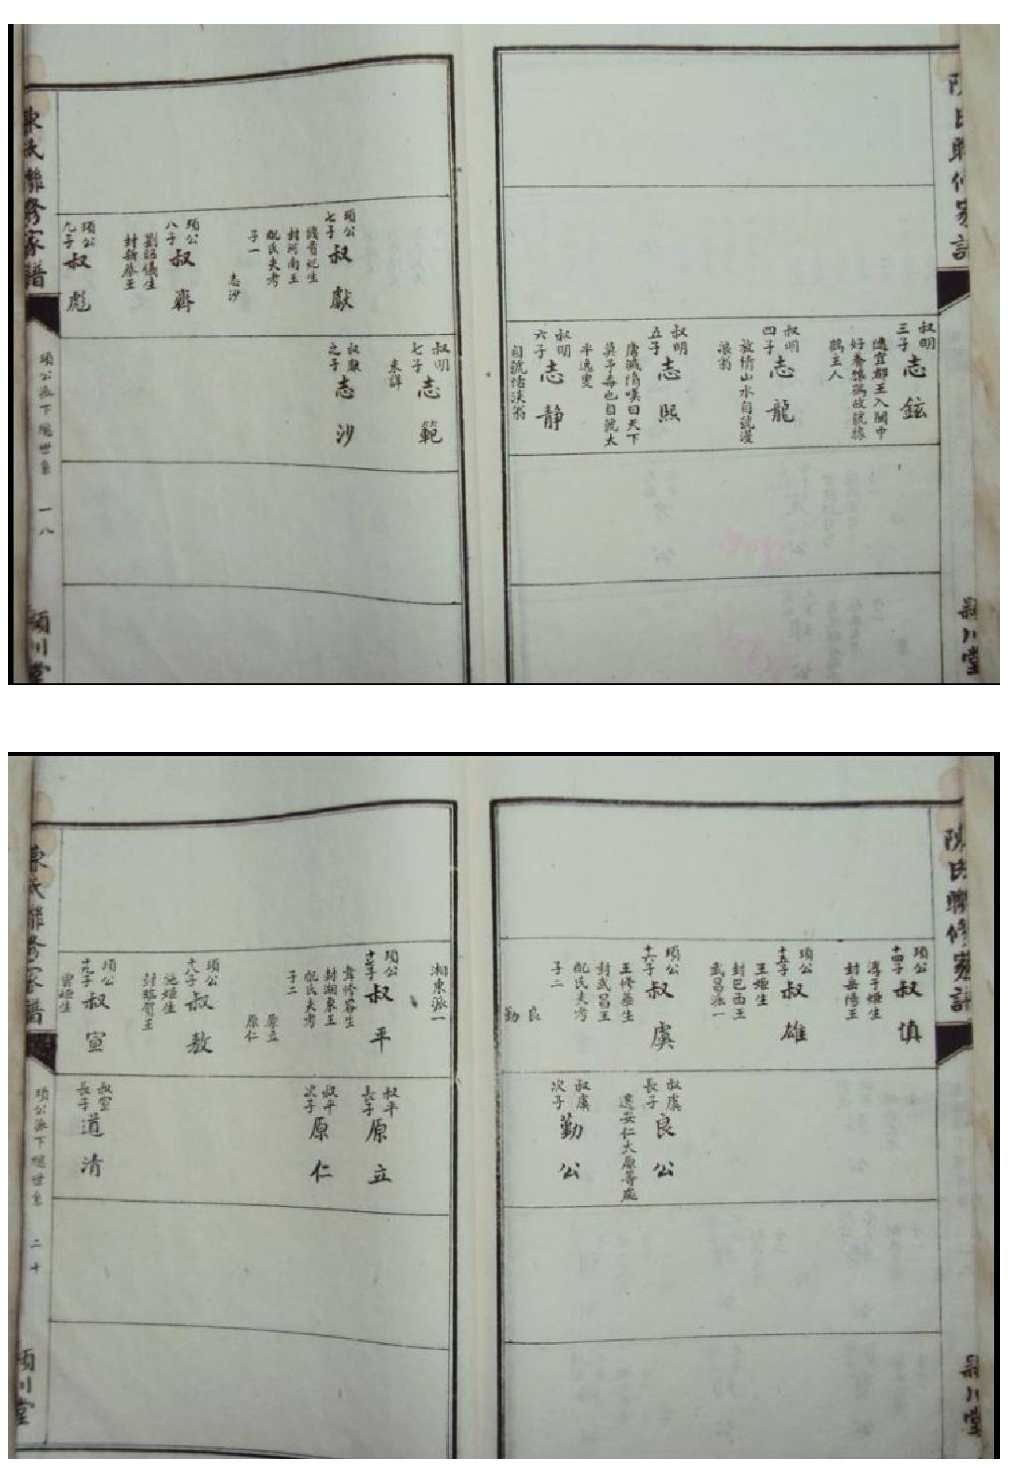 陳氏聯修家譜
潁川堂
叔明
三子
志鉉
遷宜都王入關中
好養
鶴主人
叔明
四子
志龍
放情山水自號漫
浪翁
叔明
五子
志熙
唐滅隋嘆曰天下
莫予毒也自號太
平逸叟
叔明
六子
志靜
自號恬淡翁
項公
七子
叔獻
封河南王
配氏失考
子一
志沙
項公
八子
叔齊
劉昭儀生
封新蔡王
項公
九子
叔彪
叔明
七子
志範
未詳
叔獻
之子
志沙
陳氏聯修家譜
項公派下總世系
一八
潁川堂
陳氏聯修家譜
潁川堂
項公
十四子
叔慎
淳于姬生
封岳陽王
項公
十五子
叔雄
王姬生
封巴西王
武昌派一
項公
十六子
叔虞
王修華生
封武昌王
配氏失考
子二
良
勤
叔虞
長子
良公
遷安仁大原等處
叔虞
次子
勤公
湘東派一
項公
十七子
叔平
韋修容生
封湘東王
配氏失考
子二
原立
原仁
項公
十八子
叔敖
施姬生
封臨賀王
項公
十九子
叔宣
曾姬生
叔平
長子
原立
叔平
次子
原仁
叔宣
長子
道清
陳氏聯修家譜
項公派下總世系
二十
潁川堂